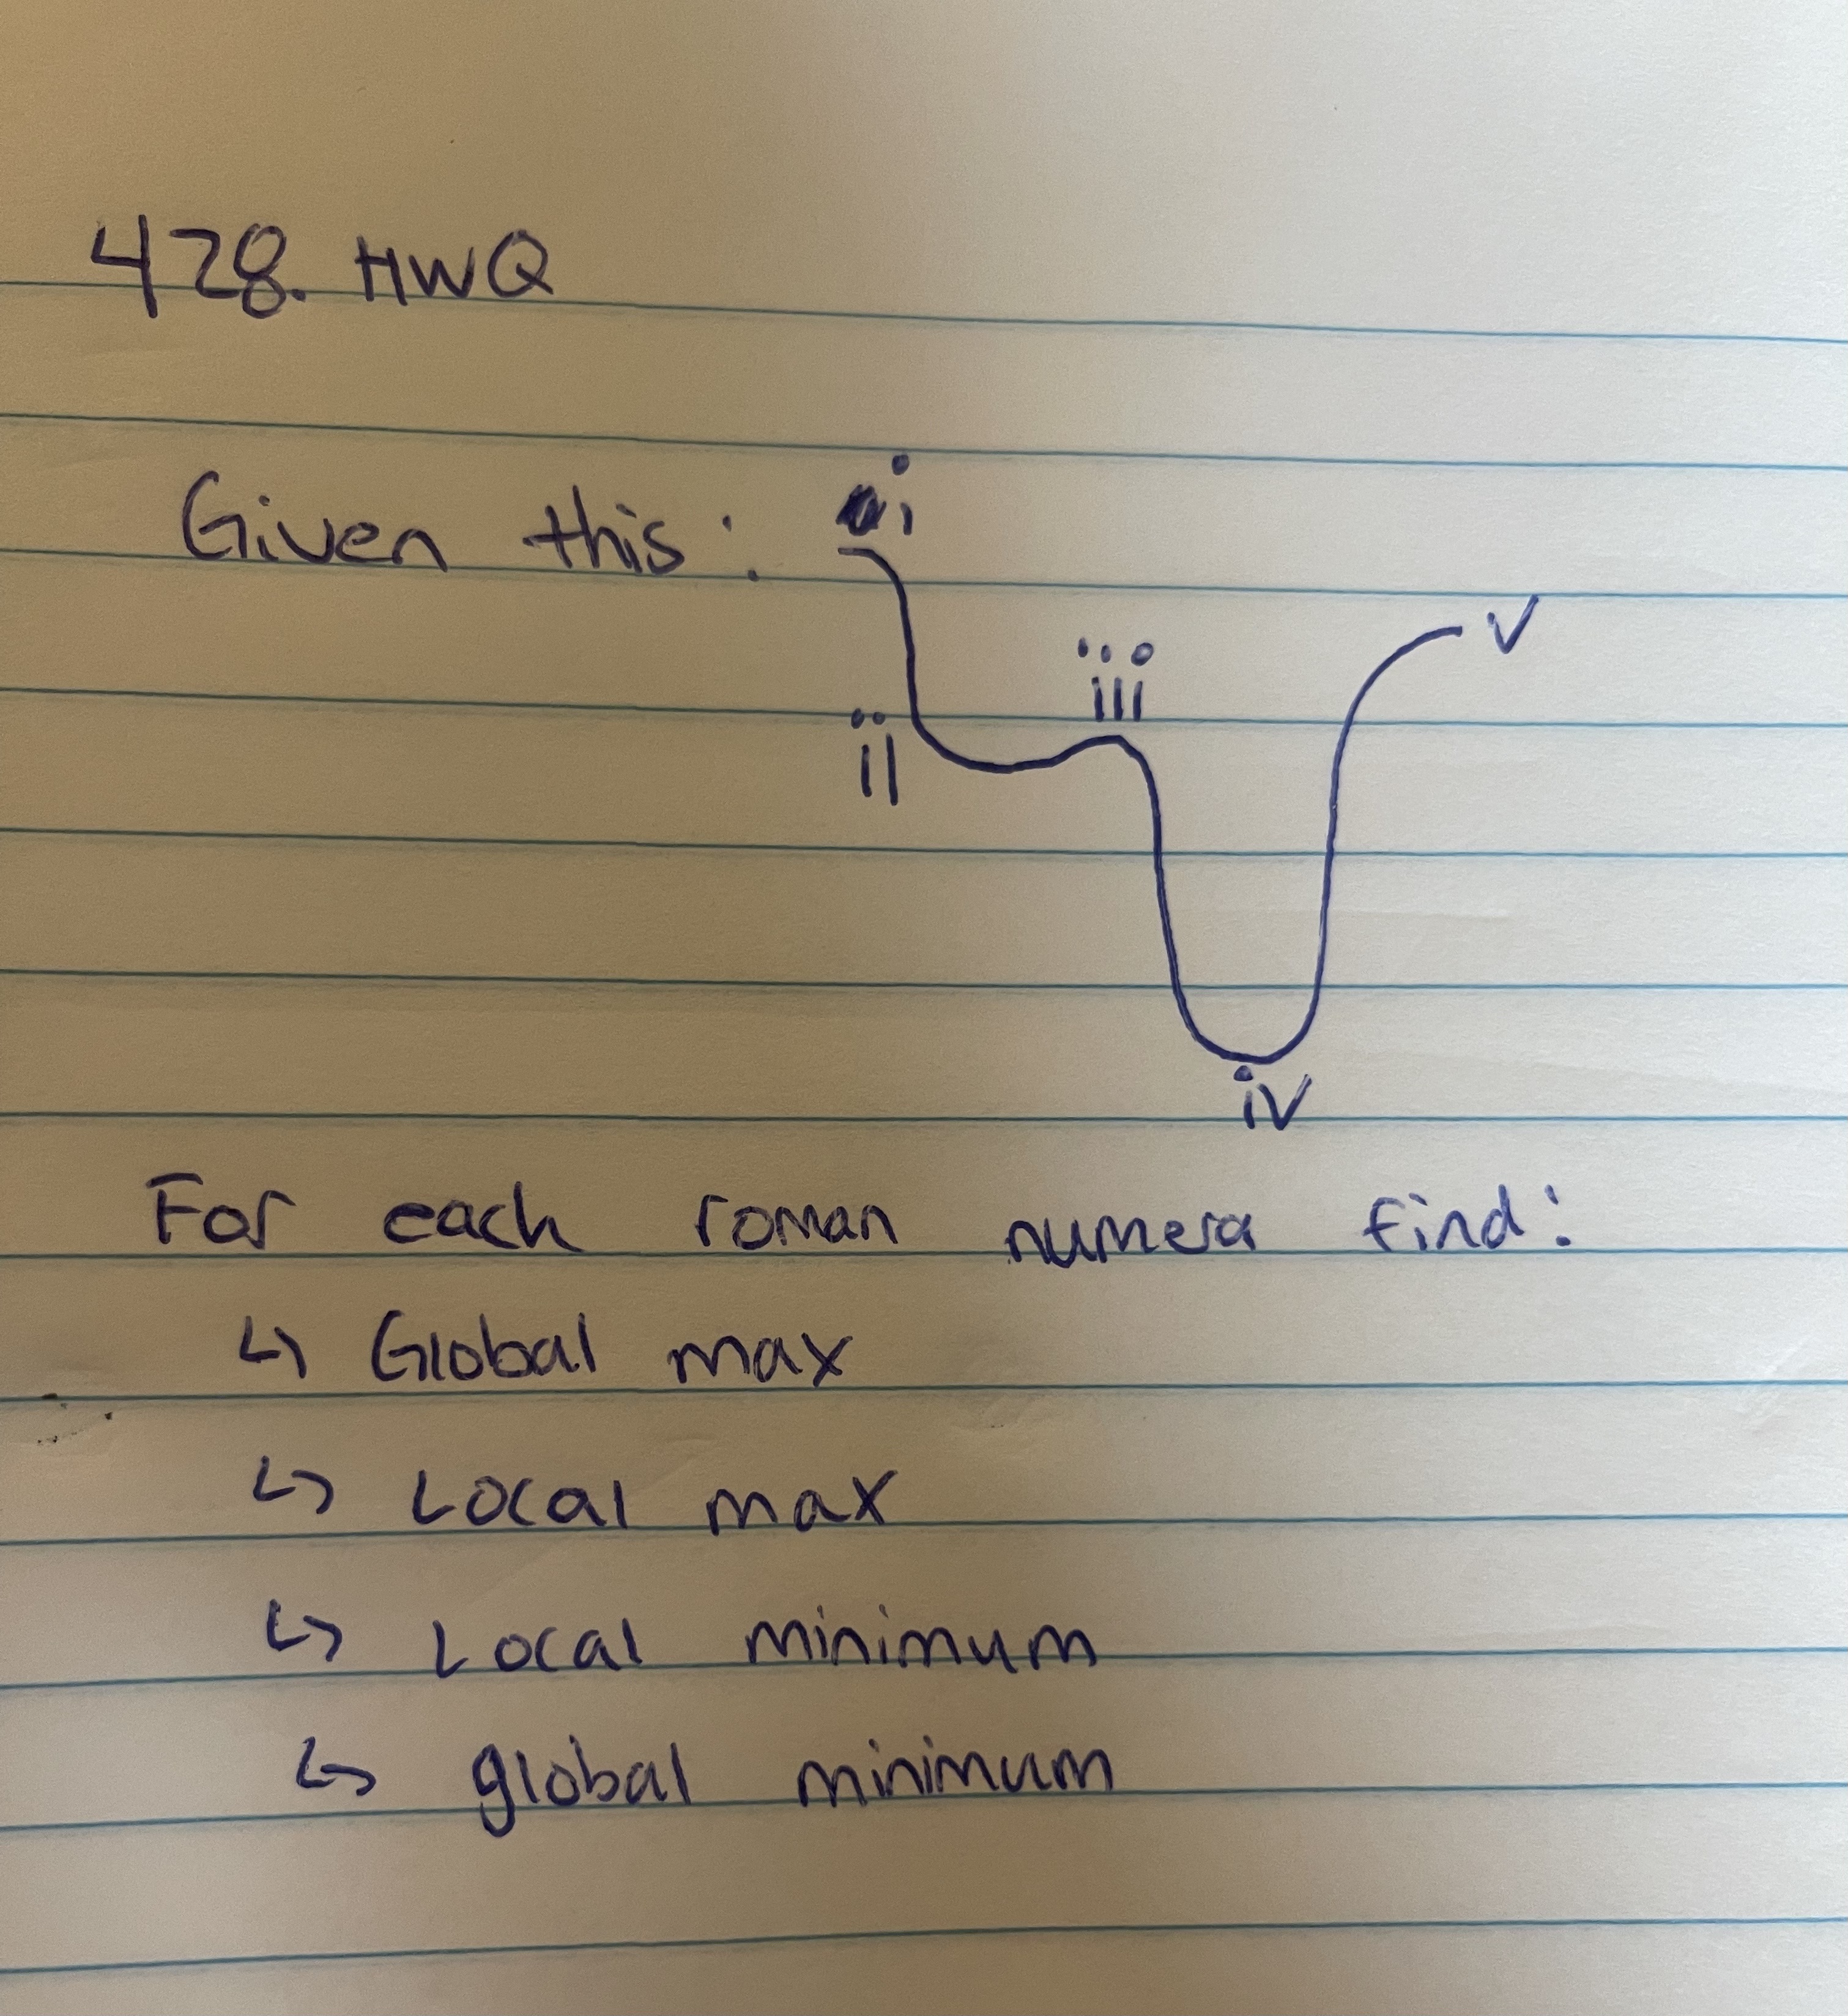 428. HWQ
Given this:
i
ii
iii
iv
v
For each roman numera find:
↳ Global max
↳ Local max
↳ Local minimum
↳ global minimum